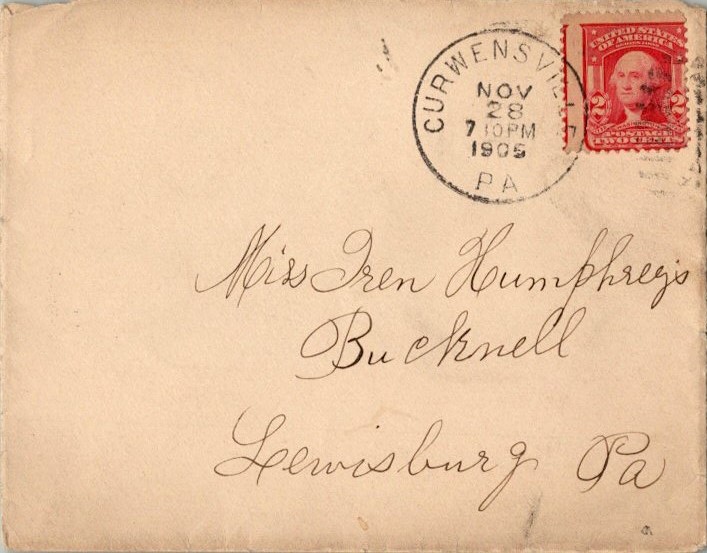 CURWENSVILLE
NOV
28
7 10PM
1905
PA
UNITED STATES
OF AMERICA
2 2
POSTAGE
TWO CENTS
Miss Iren Humphreys
Bucknell
Lewisburg Pa